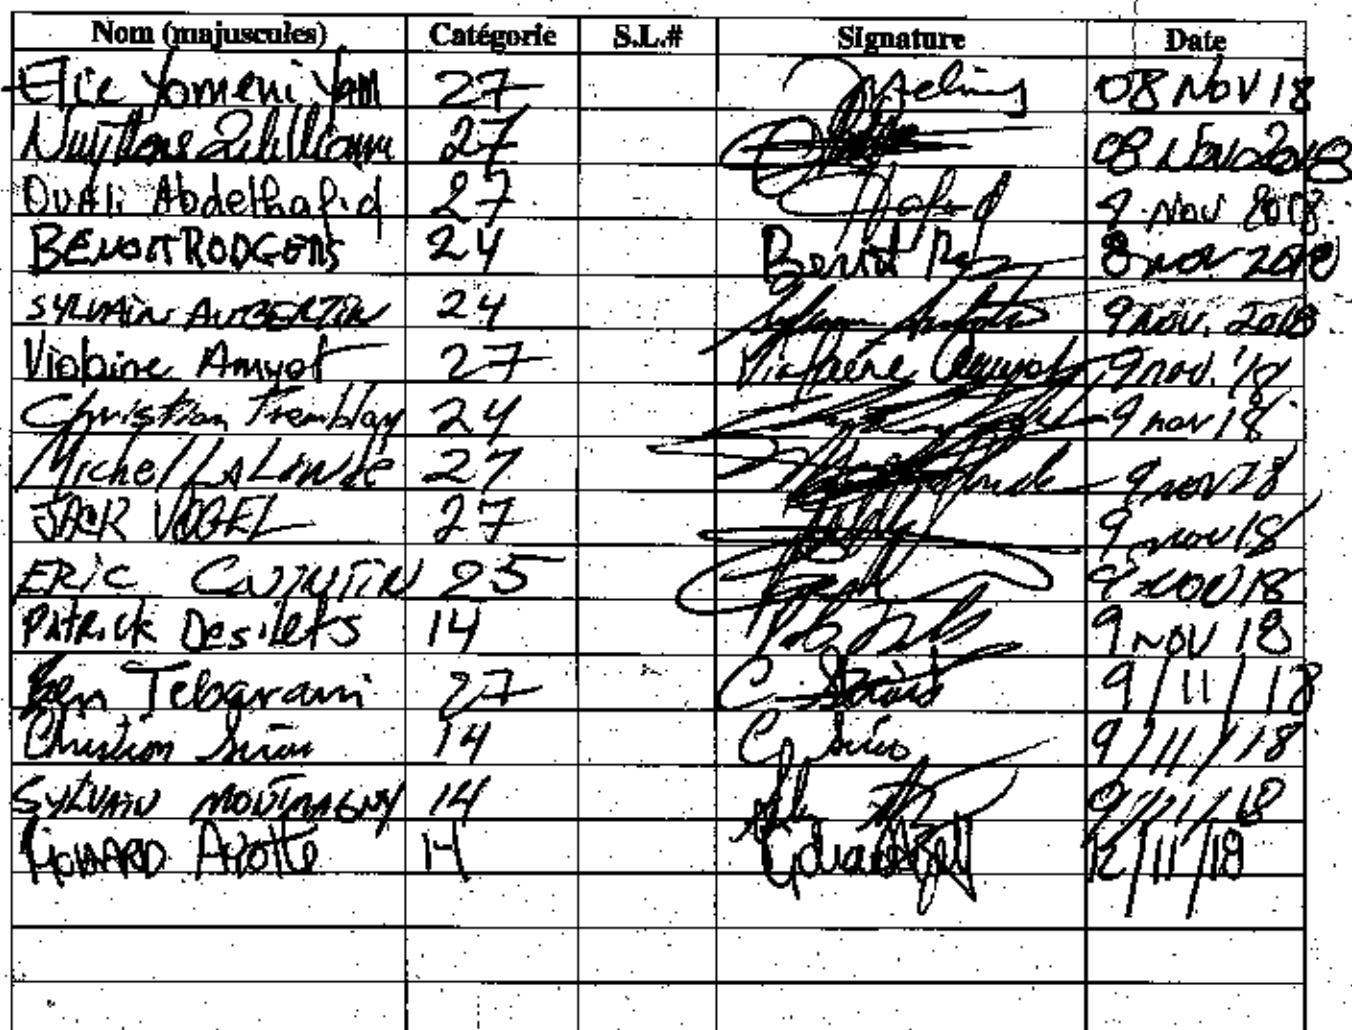 Nom (majuscules) Catégorie S.L.# Signature Date
Elie Yomeni Yam 27 08 NOV 18
27 08 Nov 2018
OUALi Abdelhafid 27 Hafid 9 Nov 2018
BENOIT RODGERS 24 Benoit 8 nov 2018
SYLVAIN AUBERTIN 24 Sylvain Aubertin 9 nov. 2018
Violaine Amyot 27 Violaine Amyot 9 nov. '18
Christian Tremblay 24 9 nov 18
Michel LALONDE 27 9 nov 18
JACK VOGEL 27 9 nov 18
ERIC QUINTIN 25 9 NOV 18
PATRICK Desilets 14 9 NOV 18
Ben Tebarani 27 9/11/18
Christian 14 C 9/11/18
SYLVAIN MONTMAGNY 14 9/11/18
14 12/11/18